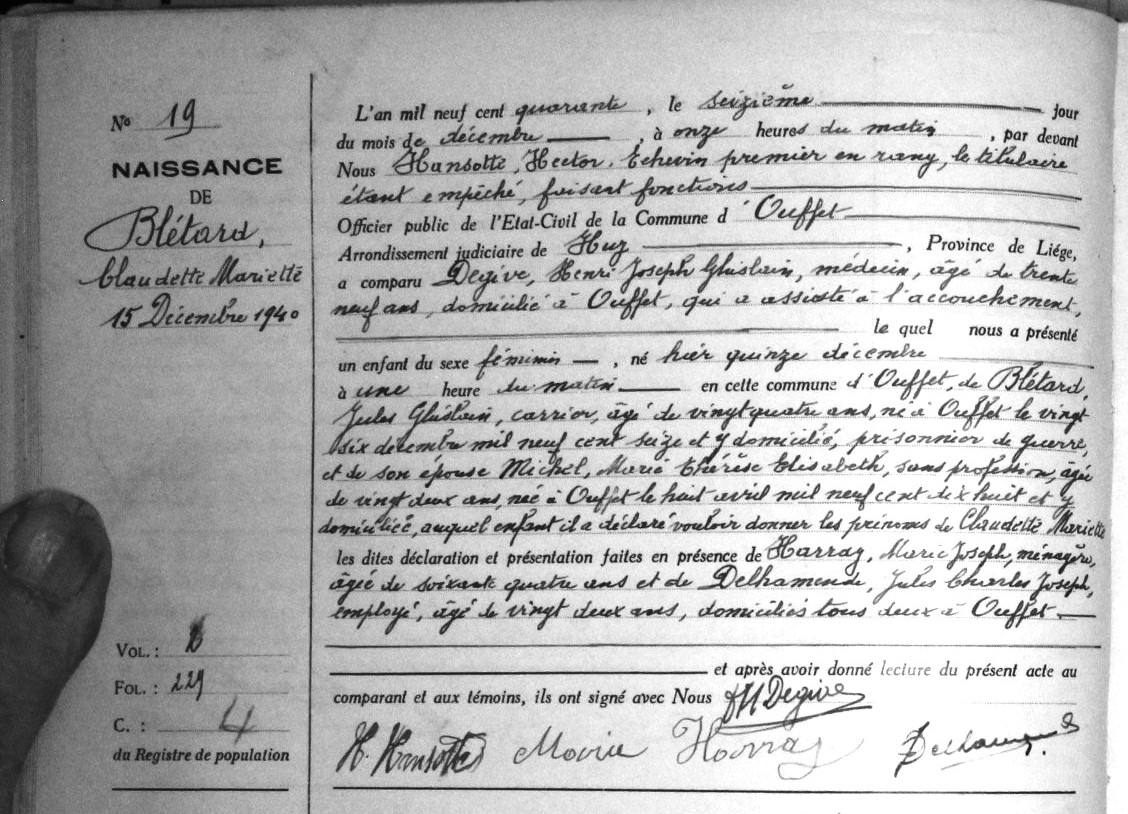 No 19
NAISSANCE
DE
Blétard,
Claudette Mariette
15 Décembre 1940
L'an mil neuf cent quarante, le seizième jour
du mois de décembre, à onze heures du matin, par devant
Nous Hansotte, Hector, Echevin premier en rang, le titulaire
étant empêché, faisant fonctions
Officier public de l'Etat-Civil de la Commune d'Ouffet
Arrondissement judiciaire de Huy, Province de Liége,
a comparu Degive, Henri Joseph Ghislain, médecin, âgé de trente
neuf ans, domicilié à Ouffet, qui a assisté à l'accouchement,
le quel nous a présenté
un enfant du sexe féminin, né hier quinze décembre
à une heure du matin en cette commune d'Ouffet, de Blétard,
Jules Ghislain, carrier, âgé de vingt quatre ans, né à Ouffet le vingt
six décembre mil neuf cent seize et y domicilié, prisonnier de guerre,
et de son épouse Michel, Marie Thérèse Elisabeth, sans profession, âgée
de vingt deux ans, née à Ouffet le huit avril mil neuf cent dix huit et y
domiciliée, auquel enfant il a déclaré vouloir donner les prénoms de Claudette Mariette
les dites déclaration et présentation faites en présence de Harray, Marie Joseph, ménagère,
âgée de soixante quatre ans et de Delhamende, Jules Charles Joseph,
employé, âgé de vingt deux ans, domiciliés tous deux à Ouffet.
et après avoir donné lecture du présent acte au
comparant et aux témoins, ils ont signé avec Nous Degive
H. Hansotte Marie Harray
VOL. :
FOL. : 229
C. : 4
du Registre de population